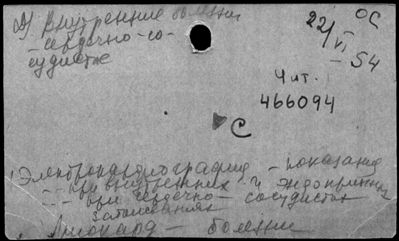 Д) Внутренние болезни
- сердечно-со-
судист.
ОС
22/VI
54
Чит.
466094
С
Электрокардиография - показания
- " - при внутренних и эндокринных
- " - при сердечно-сосудистых
заболеваниях
Миокард - болезни